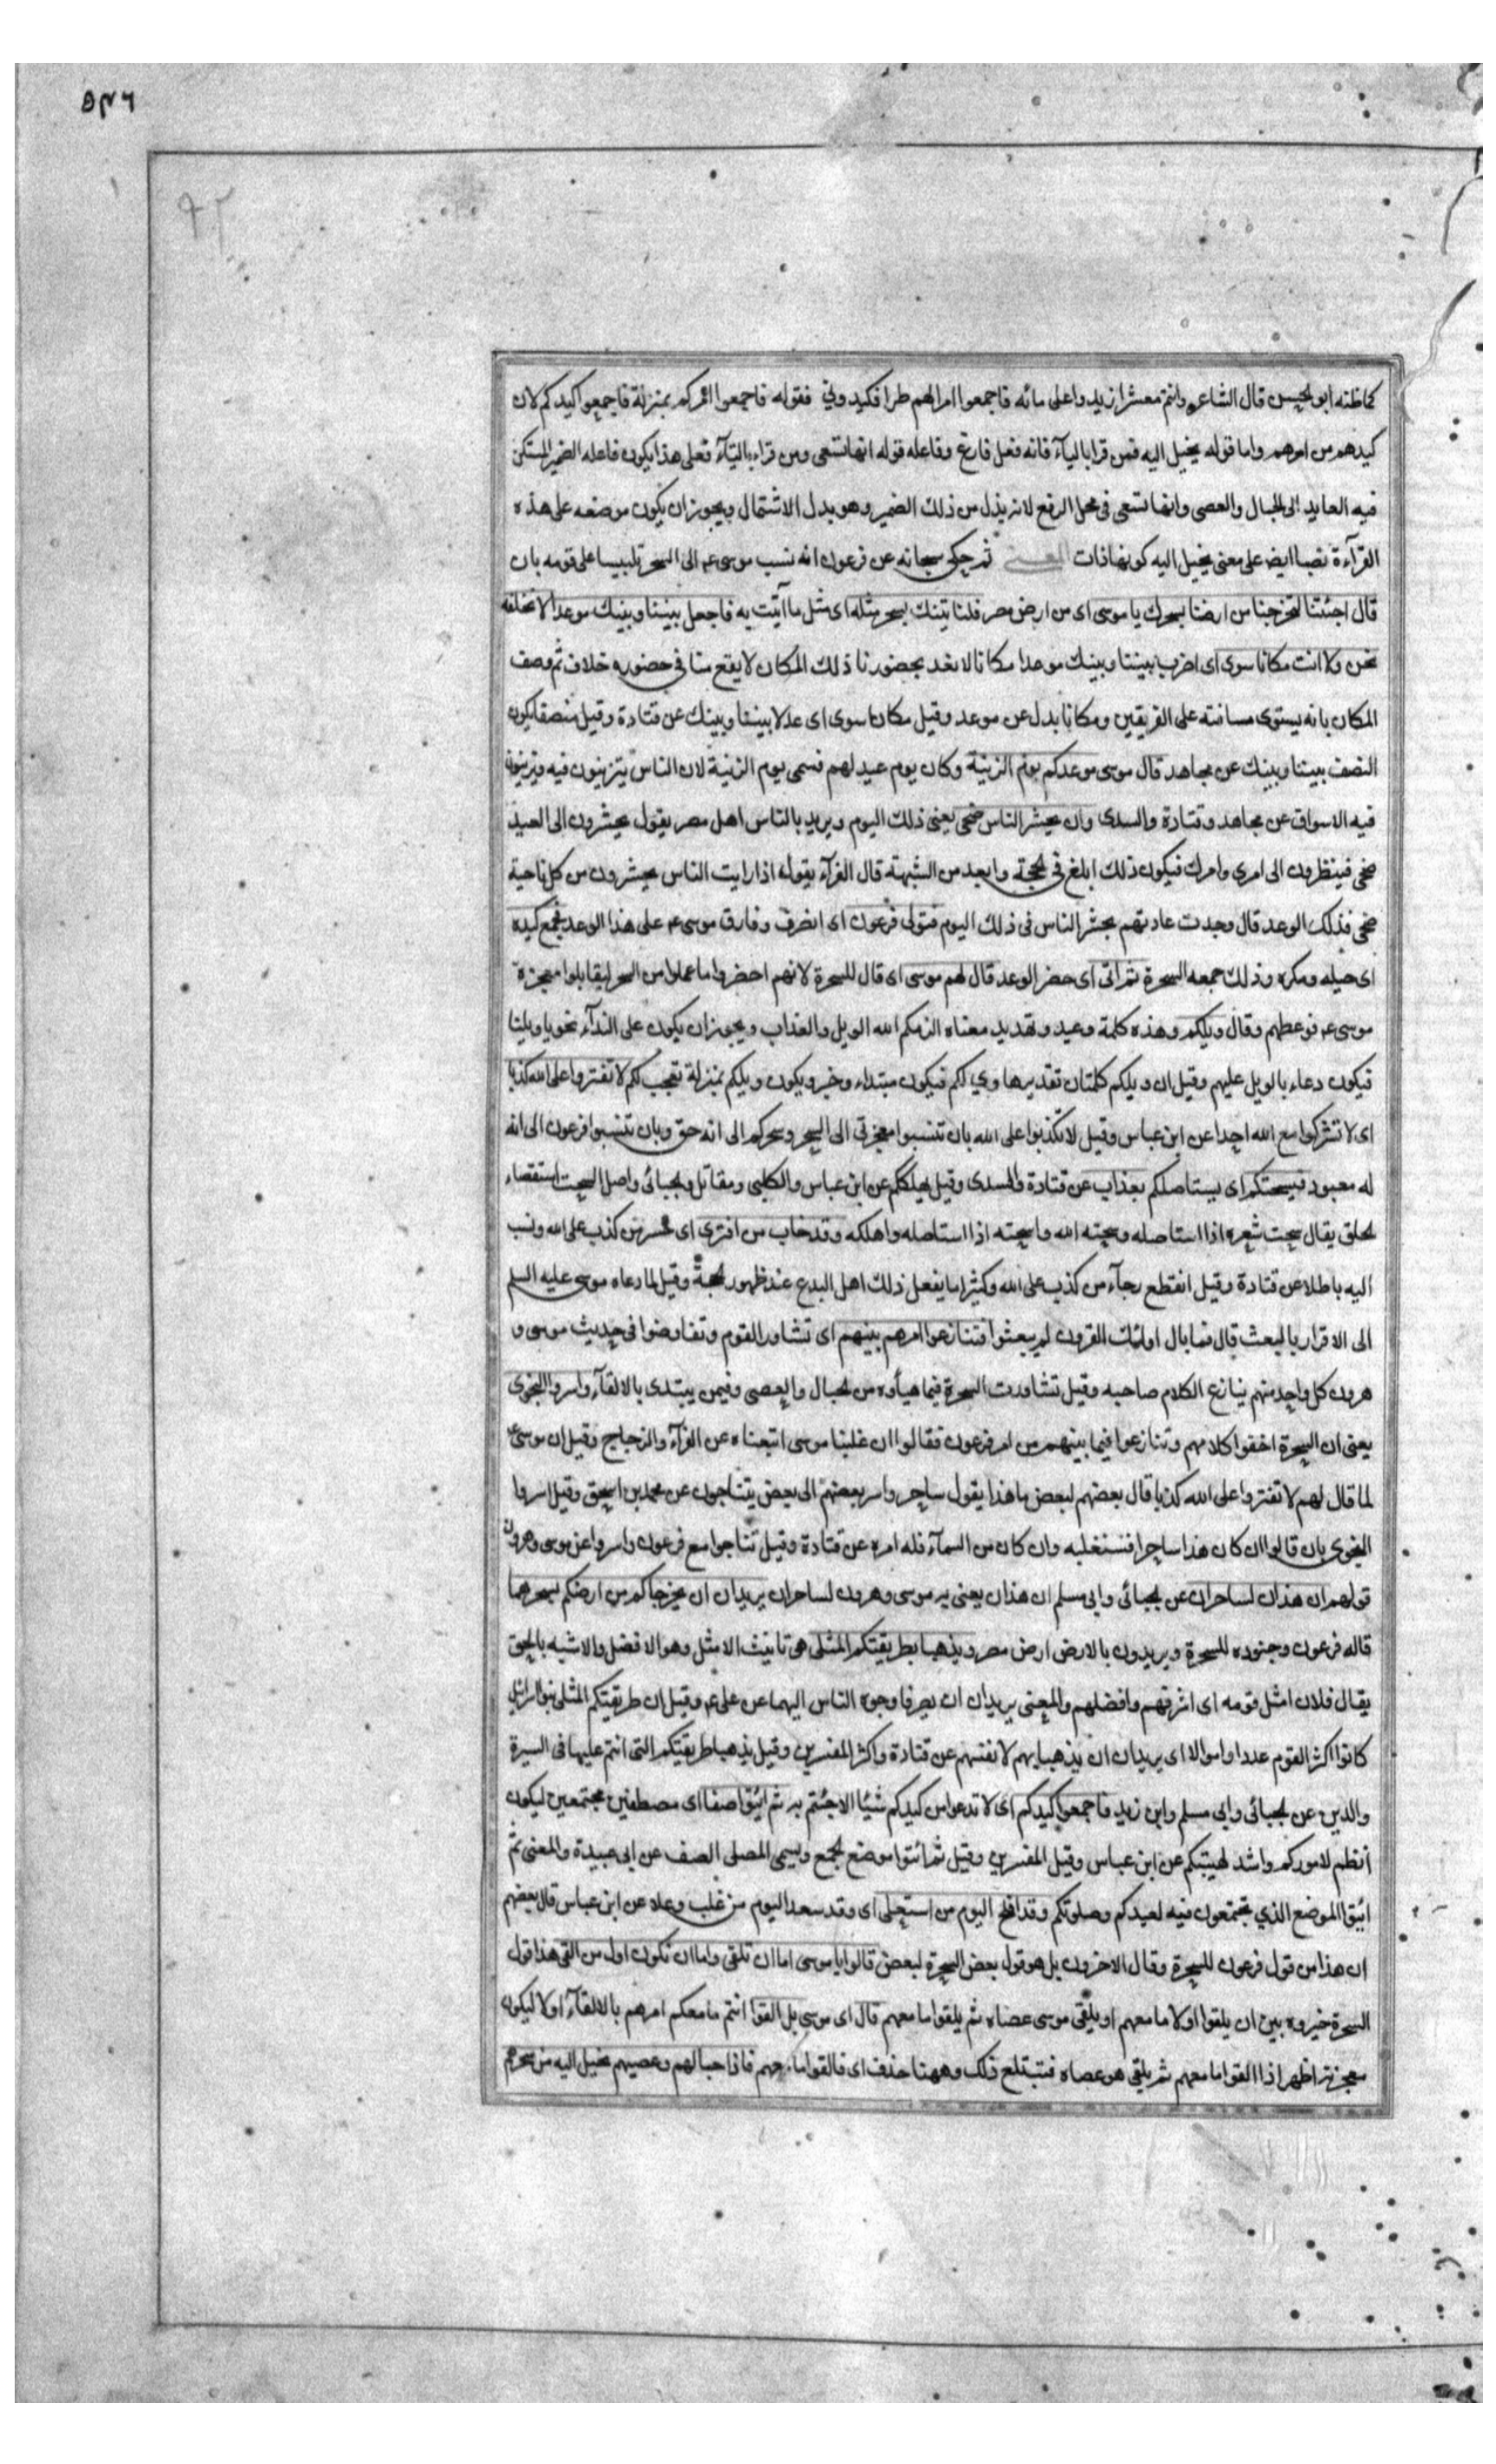 ٥٩٦
٩٢
كما ظنه ابو الحسن قال الشاعر وانتم معشر زيد واعلى مائه فاجمعوا امرلهم طرا فكيدوني فقوله فاجمعوا امركم بمنزلة فاجمعوا كيدكم لان
كيدهم من امرهم واما قوله يخيل اليه فمن قرا بالياء فانه فعل فارغ وفاعله قوله انها تسعى ومن قراء بالتآء فعلى هذا يكون فاعله الضمير المستكن
فيه العايد الى الحبال والعصى وانها تسعى في محل الرفع لانه بدل من ذلك الضمير وهو بدل الاشتمال ويجوز ان يكون موضعه على هذه
القرآءة نصبا ايض على معنى يخيل اليه كونها ذات المعنى ثم حكى سبحانه عن فرعون انه نسب موسى عم الى السحر تلبيسا على قومه بان
قال اجئتنا لتخرجنا من ارضنا بسحرك يا موسى اى من ارض مصر فلناتينك بسحر مثله اى مثل ما اتيت به فاجعل بيننا وبينك موعدا لا نخلفه
نحن ولا انت مكانا سوى اى اضرب بيننا وبينك موعدا مكانا لا نعد بحضورنا ذلك المكان لا يقع منا في حضوره خلاف ثم وصف
المكان بانه يستوى مسافته على الفريقين ومكانا بدل عن موعد وقيل مكانا سوى اى عدلا بيننا وبينك عن قتادة وقيل منصفا يكون
النصف بيننا وبينك عن مجاهد قال موسى موعدكم يوم الزينة وكان يوم عيد لهم فسمى يوم الزينة لان الناس يتزينون فيه ويزينون
فيه الاسواق عن مجاهد وقتادة والسدى وان يحشر الناس ضحى يعنى ذلك اليوم ويريد بالناس اهل مصر يقول يحشرون الى العيد
ضحى فينظرون الى امرى وامرك فيكون ذلك ابلغ في الحجة وابعد من الشبهة قال الفرآء يقول اذا رايت الناس يحشرون من كل ناحية
ضحى فذلك الوعد قال وجدت عادتهم بحشر الناس فى ذلك اليوم فتولى فرعون اى انصرف وفارق موسى عم على هذا الوعد فجمع كيده
اى حيله ومكره وذلك جمعه السحرة ثم اتى اى حضر الوعد قال لهم موسى اى قال للسحرة لانهم احضروا ما عملوا من السحر ليقابلوا معجزة
موسى عم فوعظهم وقال ويلكم وهذه كلمة وعيد وتهديد معناه الزمكم الله الويل والعذاب ويجوز ان يكون على الندآء نحو يا ويلنا
فيكون دعاء بالويل عليهم وقيل ان ويلكم كلمتان تقديرها وي لكم فيكون مبتداء وخبر ويكون ويلكم بمنزلة تعجب لكم لا تفتروا على الله كذبا
اى لا تشركوا مع الله احدا عن ابن عباس وقيل لا تكذبوا على الله بان تنسبوا معجزتى الى السحر وسحركم الى انه حق وبان تنسبوا فرعون الى انه
له معبود فيسحتكم اى يستاصلكم بعذاب عن قتادة والسدى وقيل يهلككم عن ابن عباس والكلبى ومقاتل والجبائى واصل السحت استقصاء
الحلق يقال سحت شعره اذا استاصله وسحته الله واسحته اذا استاصله واهلكه وقد خاب من افترى اى خسر من كذب على الله ونسب
اليه باطلا عن قتادة وقيل انقطع رجآء من كذب على الله وكثيرا ما يفعل ذلك اهل البدع عند ظهور الحجة وقيل لما دعاه موسى عليه السلم
الى الاقرار بالبعث قال فما بال اولئك القرون لم يبعثوا فتنازعوا امرهم بينهم اى تشاور القوم وتفاوضوا فى حديث موسى و
هرون كل واحد منهم ينازع الكلام صاحبه وقيل تشاورت السحرة فيما هيأوه من الحبال والعصى وفيمن يبتدى بالالقآء واسروا النجوى
يعنى ان السحرة اخفوا كلامهم وتنازعوا فيما بينهم من امر فرعون فقالوا ان غلبنا موسى اتبعناه عن الفرآء والزجاج وقيل ان موسى عم
لما قال لهم لا تفتروا على الله كذبا قال بعضهم لبعض ما هذا يقول ساحر واسر بعضهم الى بعض يتناجون عن محمد بن اسحق وقيل اسروا
النجوى بان قالوا ان كان هذا ساحرا فسنغلبه وان كان من السمآء فله امره عن قتادة وقيل تناجوا مع فرعون واسروا عن موسى وهرون
قولهم ان هذان لساحران عن الجبائى وابى مسلم ان هذان يعنى به موسى وهرون لساحران يريدان ان يخرجاكم من ارضكم بسحرهما
قاله فرعون وجنوده للسحرة ويريدون بالارض ارض مصر ويذهبا بطريقتكم المثلى هى تانيث الامثل وهو الافضل والاشبه بالحق
يقال فلان امثل قومه اى اشرفهم وافضلهم والمعنى يريدان ان يصرفا وجوه الناس اليهما عن على عم وقيل ان طريقتكم المثلى بنو اسرائيل
كانوا اكثر القوم عددا واموالا اى يريدان ان يذهبا بهم لانفسهم عن قتادة واكثر المفسرين وقيل يذهبا طريقتكم التى انتم عليها فى السيرة
والدين عن الجبائى وابى مسلم وابن زيد فاجمعوا كيدكم اى لا تدعوا من كيدكم شيئا الا جئتم به ثم ائتوا صفا اى مصطفين مجتمعين ليكون
انظم لاموركم واشد لهيبتكم عن ابن عباس وقيل المفسرين وقيل ثم ائتوا موضع الجمع ويسمى المصلى الصف عن ابى عبيدة والمعنى ثم
ائتوا الموضع الذي تجتمعون فيه لعيدكم وصلوتكم وقد افلح اليوم من استعلى اى وقد سعد اليوم من غلب وعلا عن ابن عباس قال بعضهم
ان هذا من قول فرعون للسحرة وقال الاخرون بل هو قول بعض السحرة لبعض قالوا يا موسى اما ان تلقى واما ان نكون اول من القى هذا قول
السحرة خيروه بين ان يلقوا اولا ما معهم او يلقى موسى عصاه ثم يلقوا ما معهم قال اى موسى بل القوا انتم ما معكم امرهم بالالقآء اولا ليكون
معجزته اظهر اذا القوا ما معهم ثم يلقى هو عصاه فتبتلع ذلك وههنا حذف اى فالقوا ما معهم فاذا حبالهم وعصيهم يخيل اليه من سحرهم